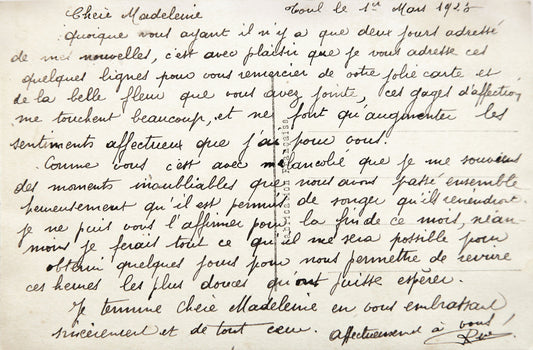 Chère Madeleine Toul le 1er Mars 1925
Quoique vous ayant il n'y a que deux jours adressé
de mes nouvelles, c'est avec plaisir que je vous adresse ces
quelques lignes pour vous remercier de votre jolie carte et
de la belle fleur que vous avez jointe, ces gages d'affection
me touchent beaucoup, et ne font qu'augmenter les
sentiments affectueux que j'ai pour vous.
Comme vous c'est avec mélancolie que je me souviens
des moments inoubliables que nous avons passé ensemble
heureusement qu'il est permis de songer qu'ils reviendront.
je ne puis vous l'affirmer pour la fin de ce mois, néan-
moins je ferais tout ce qu'il me sera possible pour
obtenir quelques jours pour nous permettre de revivre
ces heures les plus douces qu'ont puisse espérer.
Je termine Chère Madeleine en vous embrassant
sincèrement et de tout cœur. affectueusement à vous!
Fabrication Française